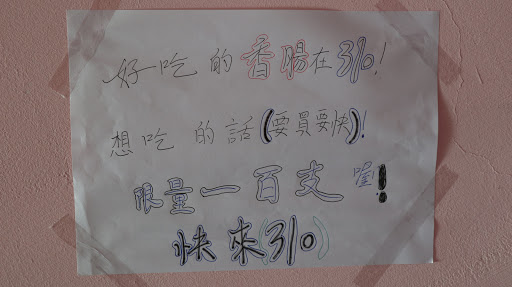 好吃的香腸在310!
想吃的話(要員要快)!
限量一百支喔!
快來(310)